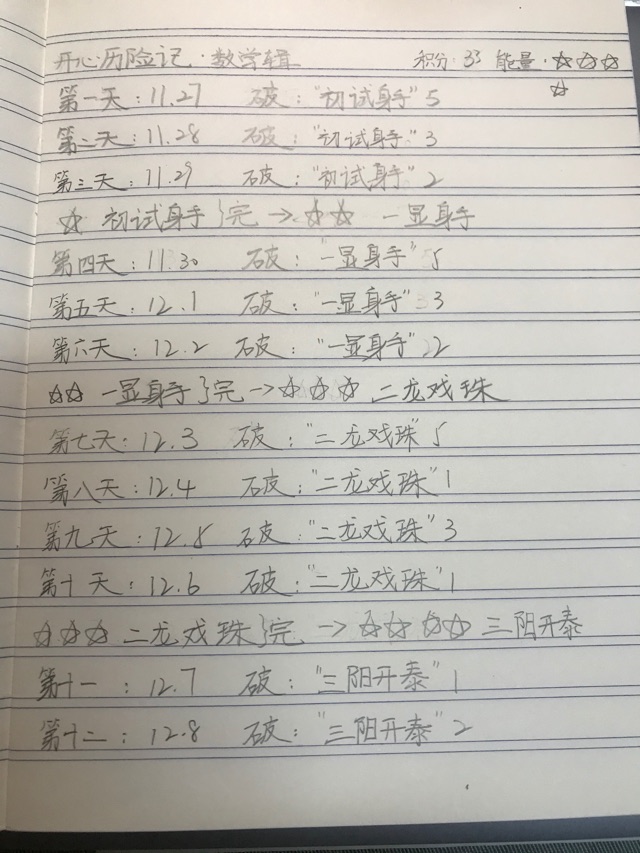 开心历险记·数学辑 积分:33 能量·☆☆☆
☆
第一天:11.27 破:"初试身手"5
第二天:11.28 破:"初试身手"3
第三天:11.29 破:"初试身手"2
☆ 初试身手}完→☆☆ 一显身手
第四天:11.30 破:"一显身手"5
第五天:12.1 破:"一显身手"3
第六天:12.2 破:"一显身手"2
☆☆ 一显身手}完→☆☆☆ 二龙戏珠
第七天:12.3 破:"二龙戏珠"5
第八天:12.4 破:"二龙戏珠"1
第九天:12.5 破:"二龙戏珠"3
第十天:12.6 破:"二龙戏珠"1
☆☆☆ 二龙戏珠}完→☆☆☆☆ 三阳开泰
第十一:12.7 破:"三阳开泰"1
第十二:12.8 破:"三阳开泰"2